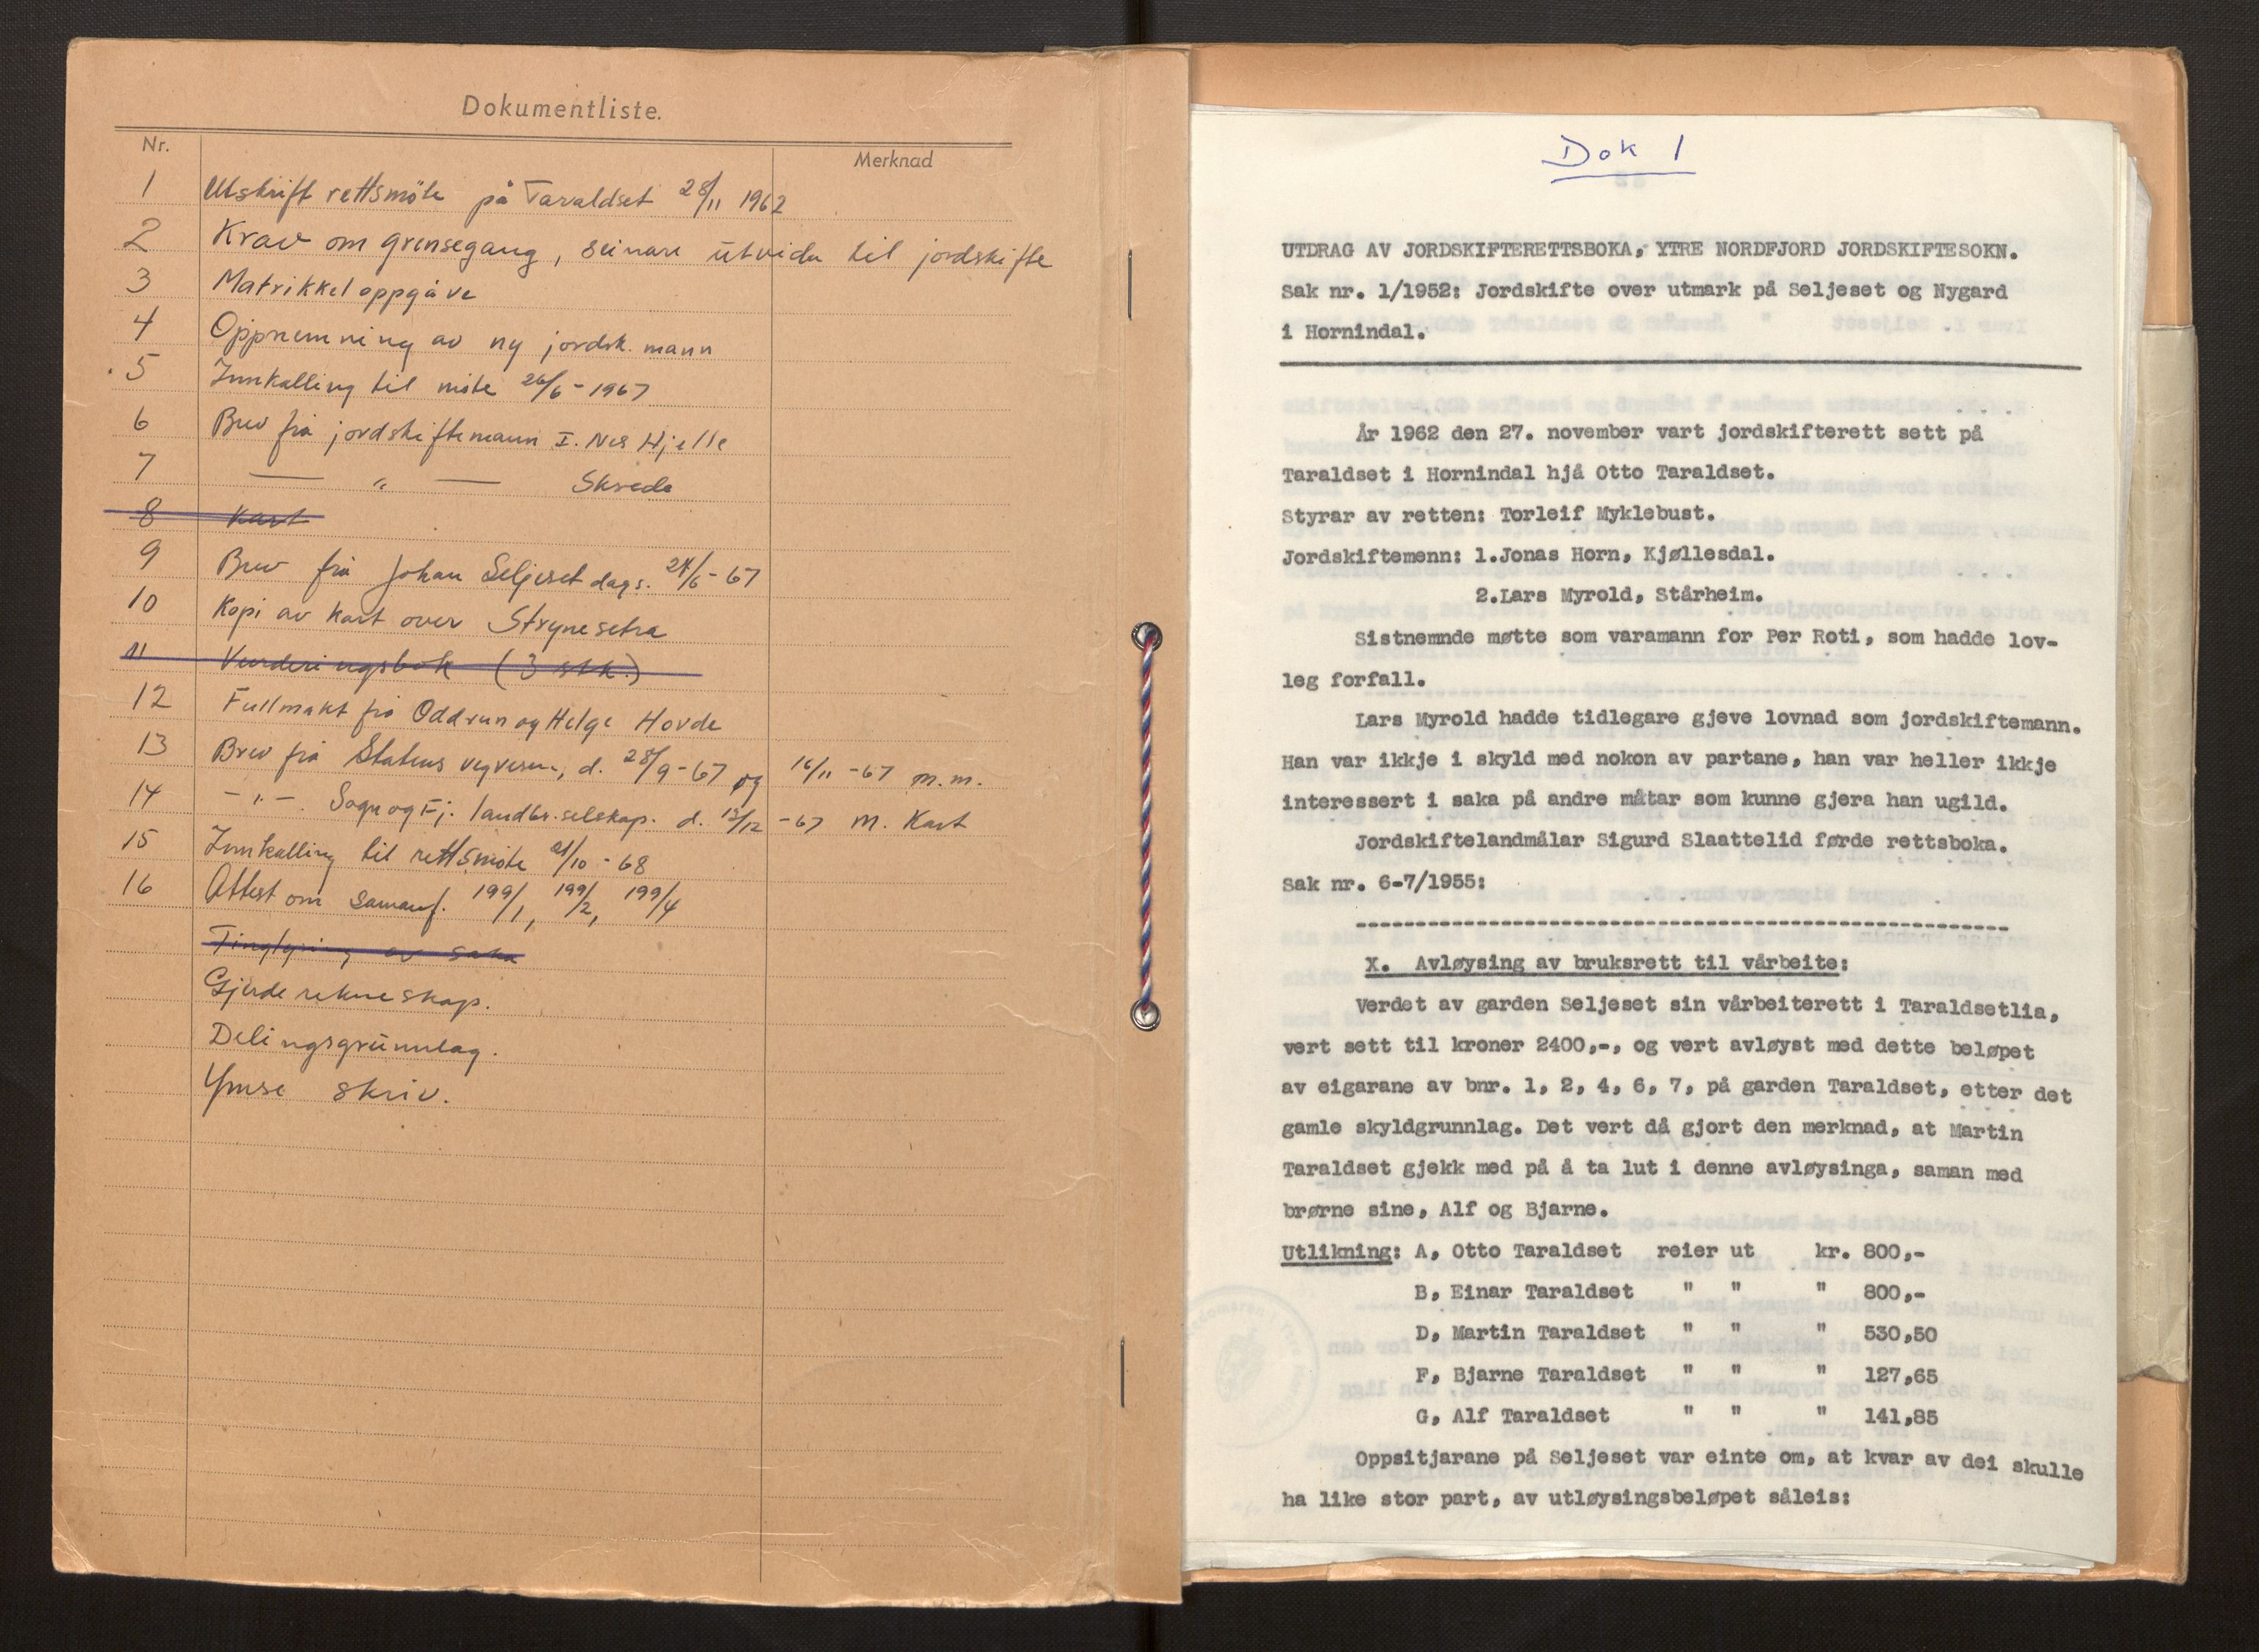 Dokumentliste.
Nr.
Merknad
1 Utskrift rettsmöte på Taraldset 28/11 1962
2 Krav om grensegang, seinare utvida til jordskifte
3 Matrikkeloppgåve
4 Oppnemning av ny jordsk. mann
5 Innkalling til möte 26/6 - 1967
6 Brev frå jordskiftemann I. Nes Hjelle
7 — " — Skrede
8 Kart
9 Brev frå Johan Seljeset dags. 24/6 - 67
10 Kopi av kart over Strynesetra
11 Vurderingsbok (3 stk.)
12 Fullmakt frå Oddrun og Helge Hovde
13 Brev frå Statens vegvesen, d. 28/9 - 67 og 16/11 - 67 m.m.
14 - " - Sogn og Fj. landbr.selskap. d. 13/12 - 67 m. Kart
15 Innkalling til rettsmöte 21/10 - 68
16 Attest om samanf. 199/1, 199/2, 199/4
Tinglysing av saka
Gjerderekneskap.
Delingsgrunnlag.
Ymse skriv.
Dok 1
UTDRAG AV JORDSKIFTERETTSBOKA, YTRE NORDFJORD JORDSKIFTESOKN.
Sak nr. 1/1952: Jordskifte over utmark på Seljeset og Nygard
i Hornindal.
. . . .
År 1962 den 27. november vart jordskifterett sett på
Taraldset i Hornindal hjå Otto Taraldset.
Styrar av retten: Torleif Myklebust.
Jordskiftemenn: 1.Jonas Horn, Kjøllesdal.
2.Lars Myrold, Stårheim.
Sistnemnde møtte som varamann for Per Roti, som hadde lov-
leg forfall.
Lars Myrold hadde tidlegare gjeve lovnad som jordskiftemann.
Han var ikkje i skyld med nokon av partane, han var heller ikkje
interessert i saka på andre måtar som kunne gjera han ugild.
Jordskiftelandmålar Sigurd Slaattelid førde rettsboka.
Sak nr. 6-7/1955:
X. Avløysing av bruksrett til vårbeite:
Verdet av garden Seljeset sin vårbeiterett i Taraldsetlia,
vert sett til kroner 2400,-, og vert avløyst med dette beløpet
av eigarane av bnr. 1, 2, 4, 6, 7, på garden Taraldset, etter det
gamle skyldgrunnlag. Det vert då gjort den merknad, at Martin
Taraldset gjekk med på å ta lut i denne avløysinga, saman med
brørne sine, Alf og Bjarne.
Utlikning: A, Otto Taraldset reier ut kr. 800,-
B, Einar Taraldset " " " 800,-
D, Martin Taraldset " " " 530,50
F, Bjarne Taraldset " " " 127,65
G, Alf Taraldset " " " 141,85
Oppsitjarane på Seljeset var einte om, at kvar av dei skulle
ha like stor part, av utløysingsbeløpet såleis: